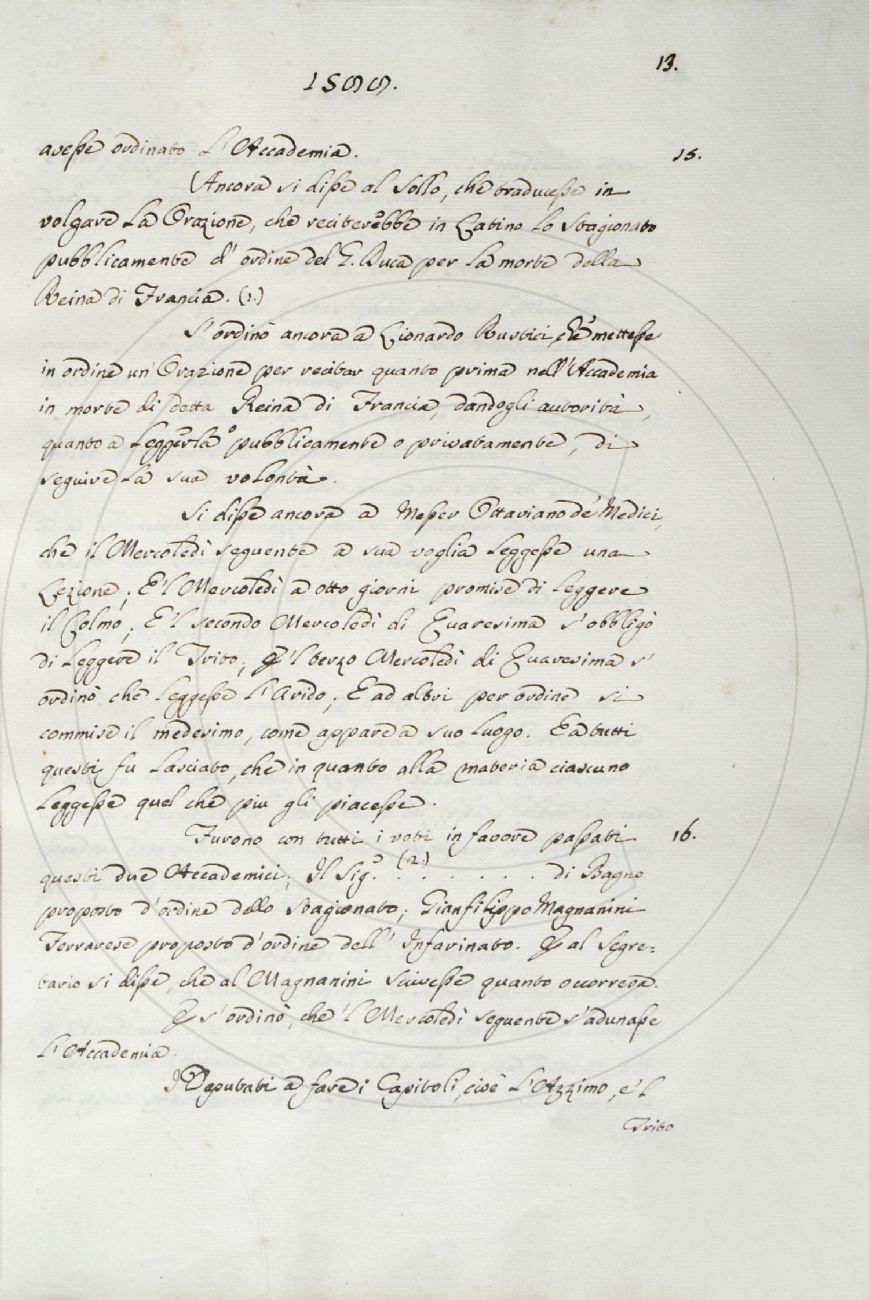 13.
1588.
avesse ordinato l'Accademia. 15.
Ancora si disse al Sollo, che traducesse in
volgare la Orazione, che reciterebbe in Latino lo Stagionato
pubblicamente d'ordine del G. Duca per la morte della
Reina di Francia. (1.)
S'ordinò ancora a Lionardo Rustici, che mettesse
in ordine un'Orazione per recitar quanto prima nell'Accademia
in morte di detta Reina di Francia, dandogli autorità,
quanto a leggerla o pubblicamente o privatamente, di
seguire la sua volontà.
Si disse ancora a Messer Ottaviano de' Medici,
che il Mercoledì seguente a sua voglia leggesse una
Lezione; E'l Mercoledì a otto giorni promise di leggere
il Colmo; E'l secondo Mercoledì di Quaresima s'obbligò
di leggere il Trito; E'l terzo Mercoledì di Quaresima s'
ordinò che leggesse l'Arido; E ad altri per ordine si
commise il medesimo, come appare a suo luogo. E a tutti
questi fu lasciato, che in quanto alla materia ciascuno
leggesse quel che piu gli piacesse.
Furono con tutti i voti in favore passati 16.
questi due Accademici; Il Sig.o (2.) . . . . . . . di Bagno
proposto d'ordine dello Stagionato; Gianfilippo Magnanini
Ferrarese proposto d'ordine dell'Infarinato. E al Segre=
tario si disse, che al Magnanini scivesse quanto occorreva.
E s'ordinò, che 'l Mercoledì seguente s'adunasse
l'Accademia.
I Deputati a fare i Capitoli, cioè l'Azzimo, e'l
Trito